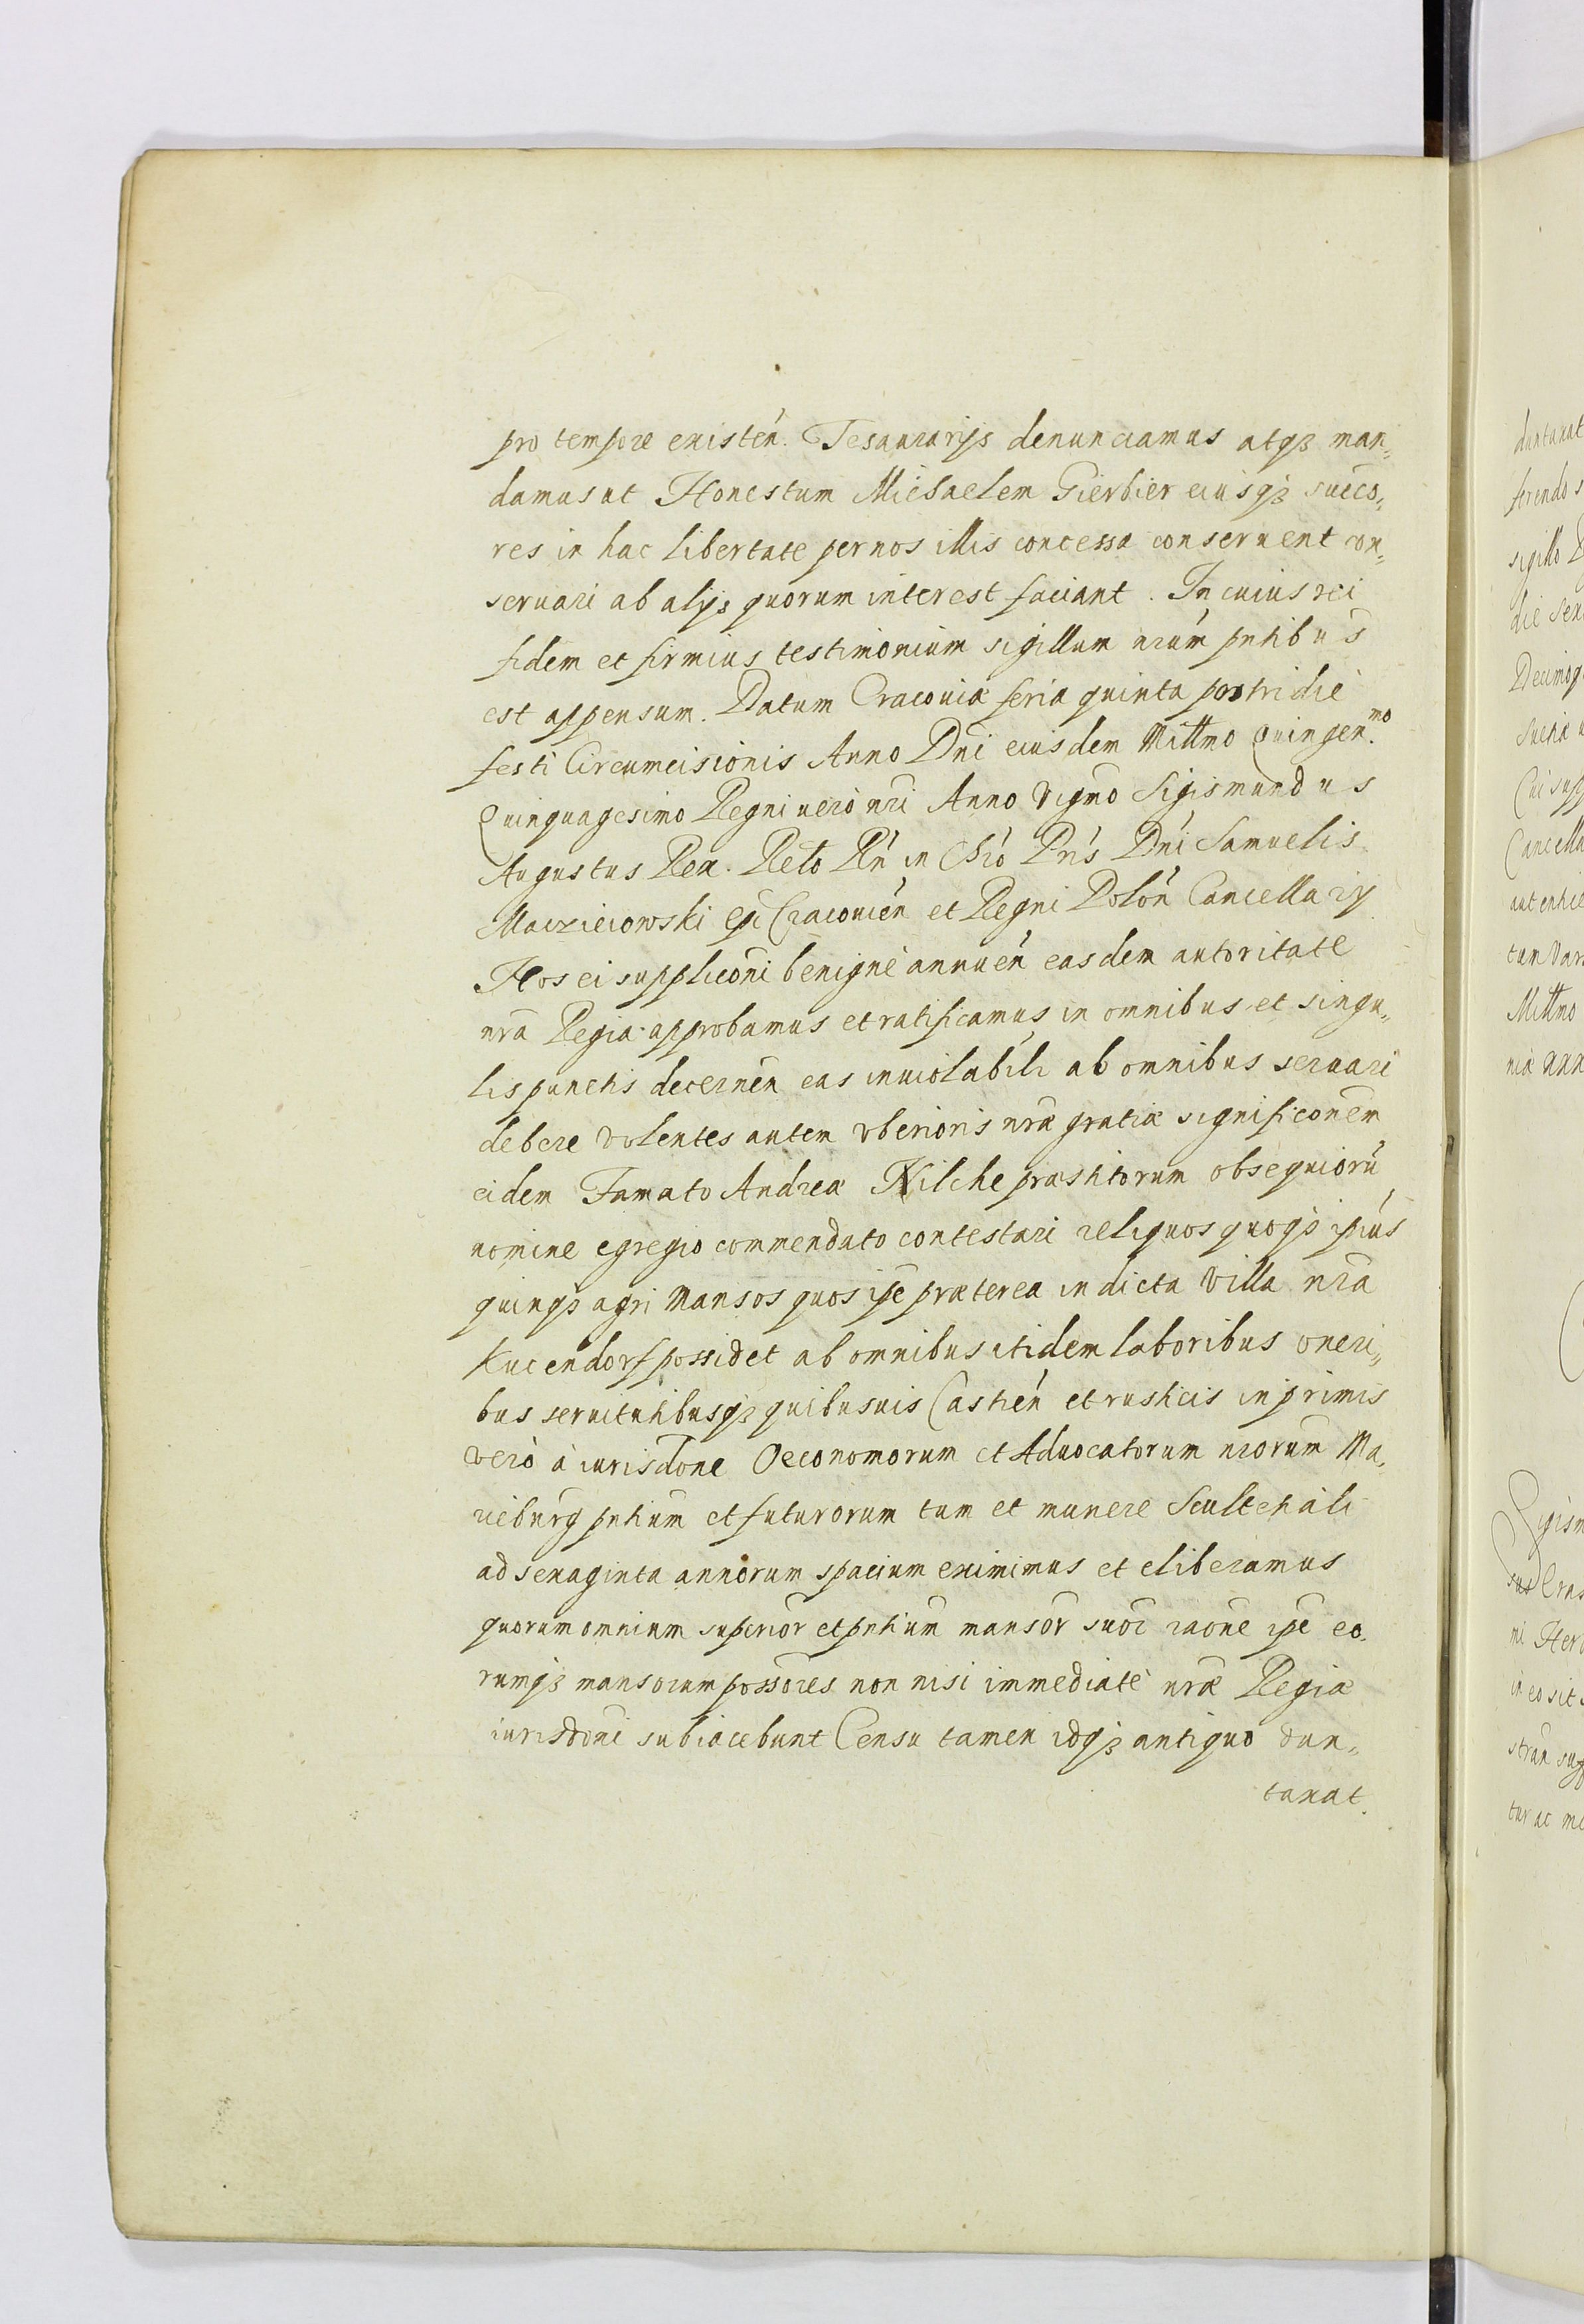 pro tempore existen. Tesaurarijs denunciamus atqʒ man„
damus ut Honestum Michaelem Gierbier eiusqʒ succo„
res in hac libertate per nos illis concessa conseruent con„
seruari ab alijs quorum interest faciant. In cuius rei
fidem et firmius testimonium sigillum nrum pntibus
est appensum. Datum Cracouiæ feria quinta postridie
festi Circumcisionis Anno Dni eiusdem Millmo Quingen.mo
Quinquagesimo Regni uero nri Anno Vigmo Sigismundus
Augustus Rex. Relo Rn in Chro Pris Dni Samuelis
Maczieiowski Epi Cracouien et Regni Polon Cancellarij
Nos ei supplicõni benignè annuen easdem autoritate
nra Regia approbamus et ratificamus in omnibus et singu„
lis punctis decernen eas inuiolabili ab omnibus seruari
debere volentes autem vberioris nræ gratiæ significonem
eidem Famato Andreæ Nilche præstitorum obsequiorũ
nomine egregio commendato contestari reliquos quoqʒ ipius
quinqʒ agri Mansos quos ipe præterea in dicta Villa nra
Kucendorf possidet ab omnibus itidem laboribus oneri„
bus seruitutibusqʒ quibusuis Castren et rusticis in primis
vero à iurisdone Oeconomorum et Aduocatorum nrorum Ma„
rieburg pntium et futurorum tum et munere Scultetali
ad sexaginta annorum spacium eximimus et eliberamus
quorum omnium superior et pntium mansor suor raone ipe eo„
rumqʒ mansorum possores non nisi immediatè nræ Regiæ
iurisdoni subiacebunt Censu tamen idqʒ antiquo dun„
taxat.
duntaxat
ferendo s
sigillo
die
Decimoq
Cancella
tum Vars
Millmo
Sigism
mi
in eo sit
tur ac